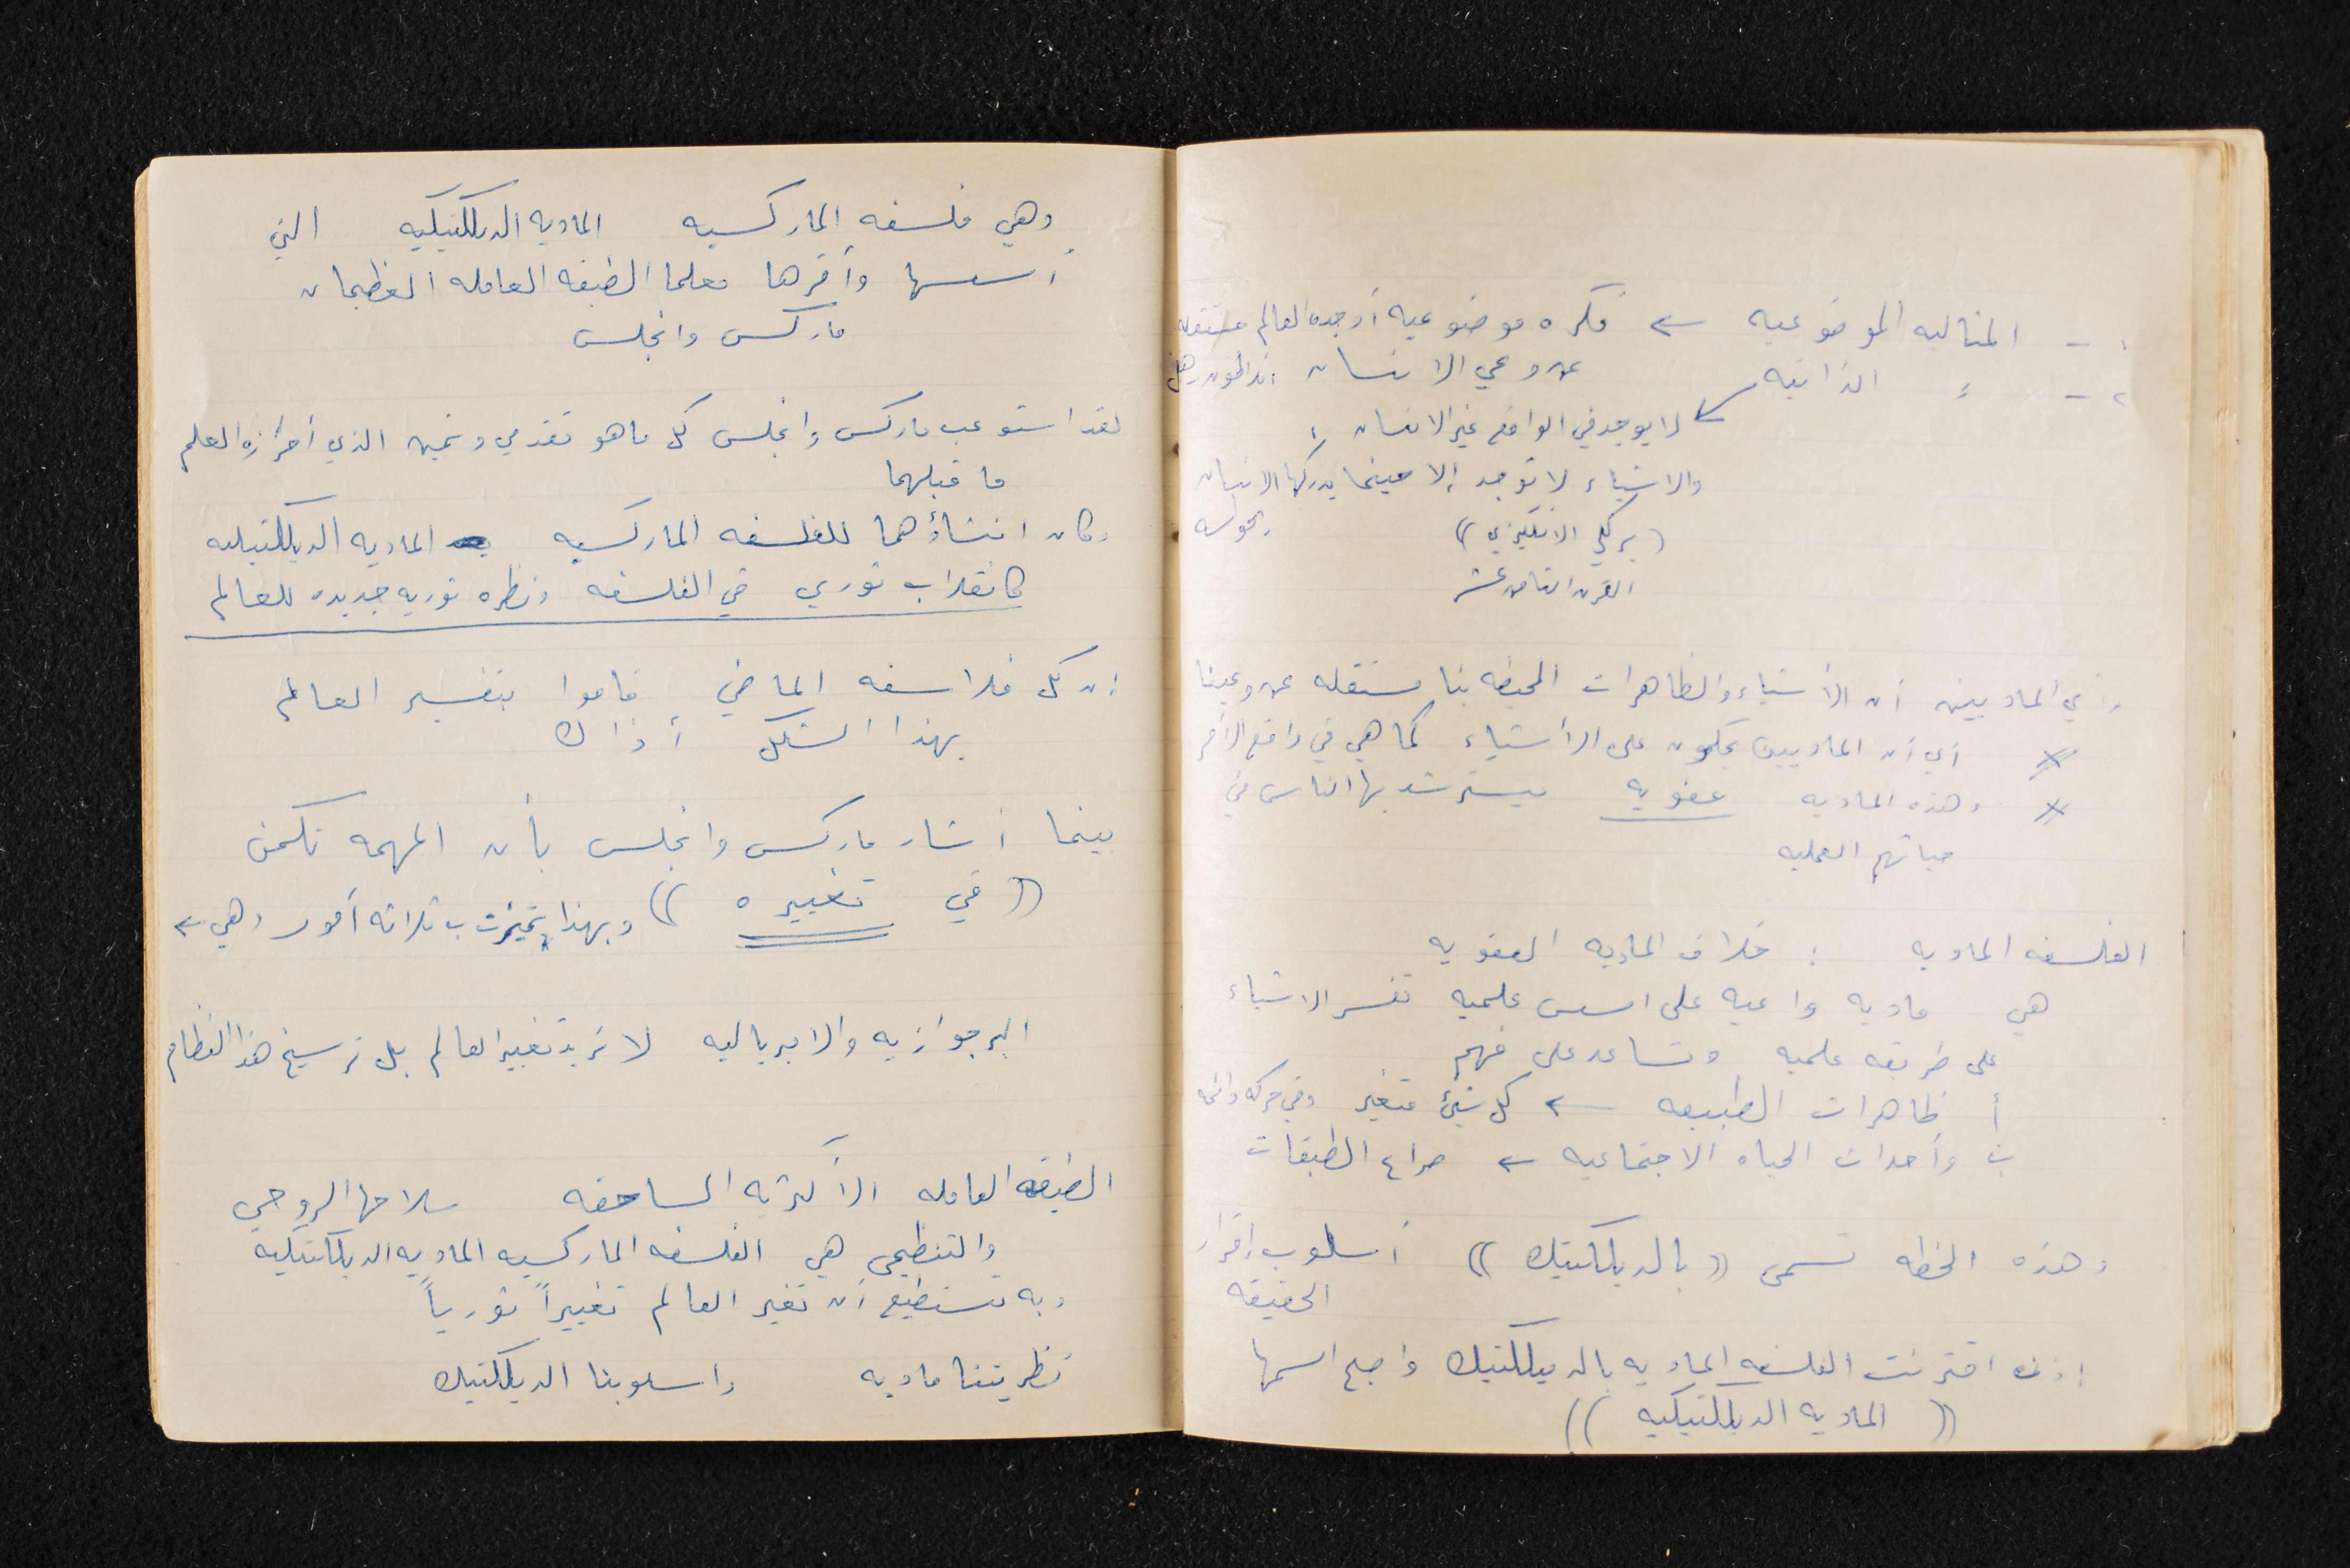 ١ - المثاليه الموضوعيه ← فكره موضوعيه أوجدت العالم مستقله
عن وعي الانسان :
٢ - 〃 الذاتيه
لا يوجد في الواقع غير الانسان ،
والاشياء لا توجد إلا حينما يدركها الانسان
(بركلي الانكليزي)) بحواسه
القرن الثامن عشر
رأي الماديين أن الأشياء والظاهرات المحيطه بنا مستقله عن وعينا
* أي أن الماديين يحكمون على الأشياء كما هي في واقع الأمر
* وهذه الماديه عفويه يسترشد بها الناس في
حياتهم العمليه
الفلسفه الماديه : خلاف الماديه العفويه
هي ماديه واعيه على اسس علميه تفسر الاشياء
على طريقه علميه وتساعد على فهم
أ ظاهرات الطبيعه ← كل شيئ متغير وفي حركه دائمه
ب وأحداث الحياه الاجتماعيه ← صراع الطبقات
وهذه الخطه تسمى ((بالديلكتيك)) أسلوب إقرار
الحقيقه
إذن اقترنت الفلسفه الماديه بالديلكتيك واصبح اسمها
((الماديه الديلكتيكيه))
وهي فلسفه الماركسيه الماديه الديلكتيكيه التي
أسسها وأقرها معلما الطبقه العامله العظيمان
ماركس وانجلس
لقد استوعب ماركس وانجلس كل ماهو تقدمي وثمين الذي أحرزه العلم
ما قبلهما
وكان انشاؤهما للفلسفه الماركسيه الماديه الديلكتيكيه
كانقلاب ثوري في الفلسفه ونظره ثوريه جديده للعالم
إن كل فلاسفه الماضي قاموا بتفسير العالم
بهذا الشكل أو ذاك
بينما أشار ماركس وانجلس بأن المهمه تكمن
((في تغييره)) وبهذا تميزت ب ثلاثه أمور وهي ←
البرجوازيه والامبرياليه لا تريد تغيير العالم بل ترسيخ هذا النظام
الطبقه العامله الأكثريه الساحقه سلاحها الروحي
والتنظيمي هي الفلسفه الماركسيه الماديه الديلكتيكيه
وبه تستطيع أن تغير العالم تغييراً ثورياً
نظريتنا ماديه واسلوبنا الديلكتيك